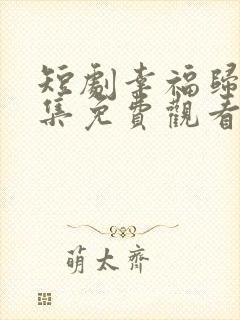 短劇幸福歸
集免費觀看
萌太齊